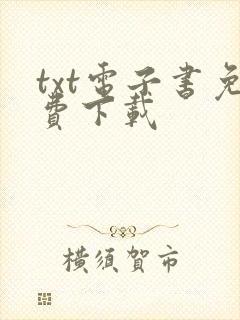 txt電子書免
費下載
橫須賀市